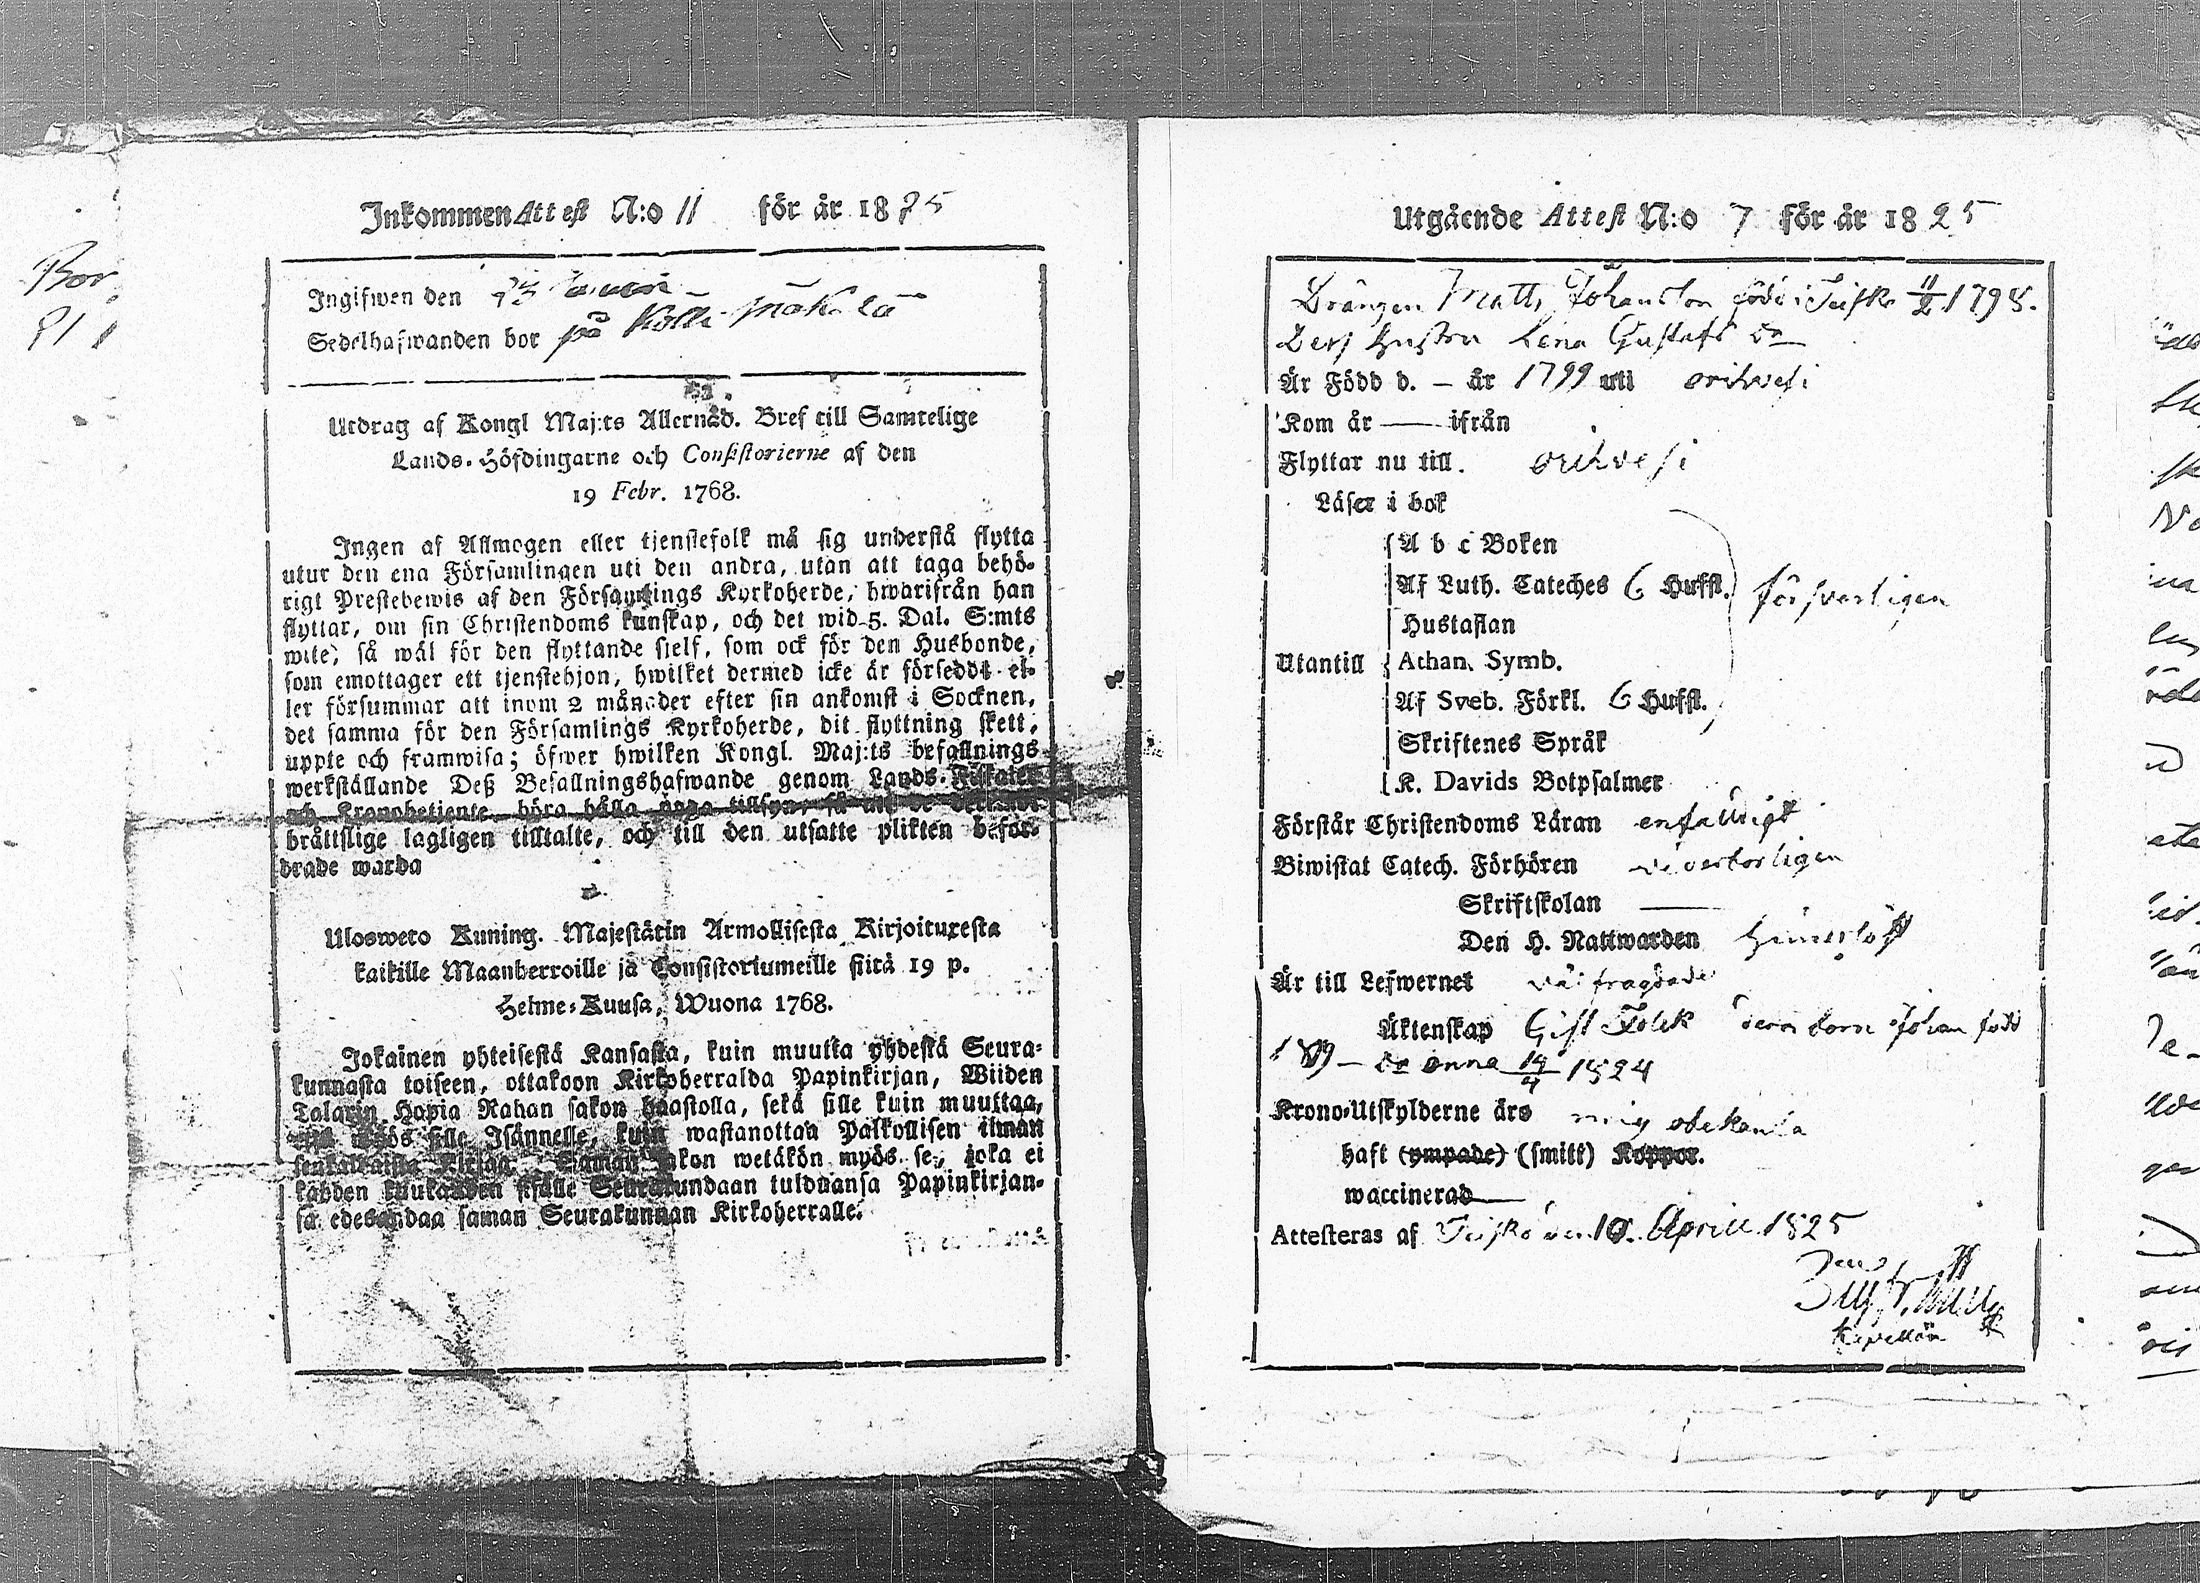 Inkommen Attest N:o 11 för år 1825
Ingifwen den
Sedelhafwanden bor på
Utdrag af Kongl Maj:ts Allernåd. Bref till Samtelige
Lands-Höfdingarne och Consistorierne af den
19 Febr. 1768.
Ingen af Allmogen eller tjenstefolk må sig understå flytta
utur den ena Församlingen uti den andra, utan att taga behö-
rigt Prestebewis af den Församlings Kyrkoherde, hwarifrån han
flyttar, om sin Christendoms kunskap, och det wid 5. Dal. S:mts
wite; så wäl för den flyttande sjelf, som ock för den Husbonde,
som emottager ett tjenstehjon, hwilket dermed icke är förseddt el-
ler försummar att inom 2 månader efter sin ankomst i Socknen,
det samma för den Församlings Kyrkoherde, dit flyttning skett,
uppte och framwisa; öfwer hwilken Kongl. Maj:ts befallnings
werkställande Deß Befallningshafwande genom Lands-Fiskaler
och Kronobetjente böra hålla noga tillsyn, så att de
brättslige lagligen tilltalte, och till den utsatte plikten befor-
drade warda
Uloswero Kuning. Majestätin Armollisesta Kirjoituxesta
kaikille Maanherroille ja Consistoriumeille siitä 19 p.
Helme-Kuusa, Wuona 1768.
Jokainen yhteisestä Kansasta, kuin muutta yhdestä Seura-
kunnasta toiseen, ottakoon Kirkoherralda Papinkirjan, Wiiden
Talarin Hopia Rahan sakon haastolla, sekä sille kuin muuttaa,
myös sille Isännelle, kuin wastanottaa Palkollisen ilman
senkaltaista Kirjaa. Saman sakon wetäkön myös se, joka ei
kahden kuukauden sisälle Seurakundaan tulduansa Papinkirjan-
sa edesandaa saman Seurakunnan Kirkoherralle.
Utgående Attest N:o 7 för år 1825
Drängen Matts Johansson född i Teisko 11/2 1798.
Des Hustru Lena Gustafs Dr
Är Född d. — år 1799 uti orihvesi
Kom år — ifrån
Flyttar nu till. orihvesi
Läser i bok
A b c Boken
Af Luth. Cateches 6 Hufst. försvarligen
Hustaflan
Utantill Athan. Symb.
Af Sveb. Förkl. 6 Hufst.
Skriftenes Språk
K. Davids Botpsalmer
Förstår Christendoms Läran enfaldigt
Biwistat Catech. Förhören
Skriftskolan —
Den H. Nattwarden
Är till Lefwernet väl fragdade
Äktenskap Gift Folck deras barn Johan född
1819 — Dr Anna 14/4 1824
Krono-Utskylderne äro mig obekanta
haft (ympade) (smitt) Koppor.
waccinerad —
Attesteras af Teisko den 10. Aprill 1825
Kapellan